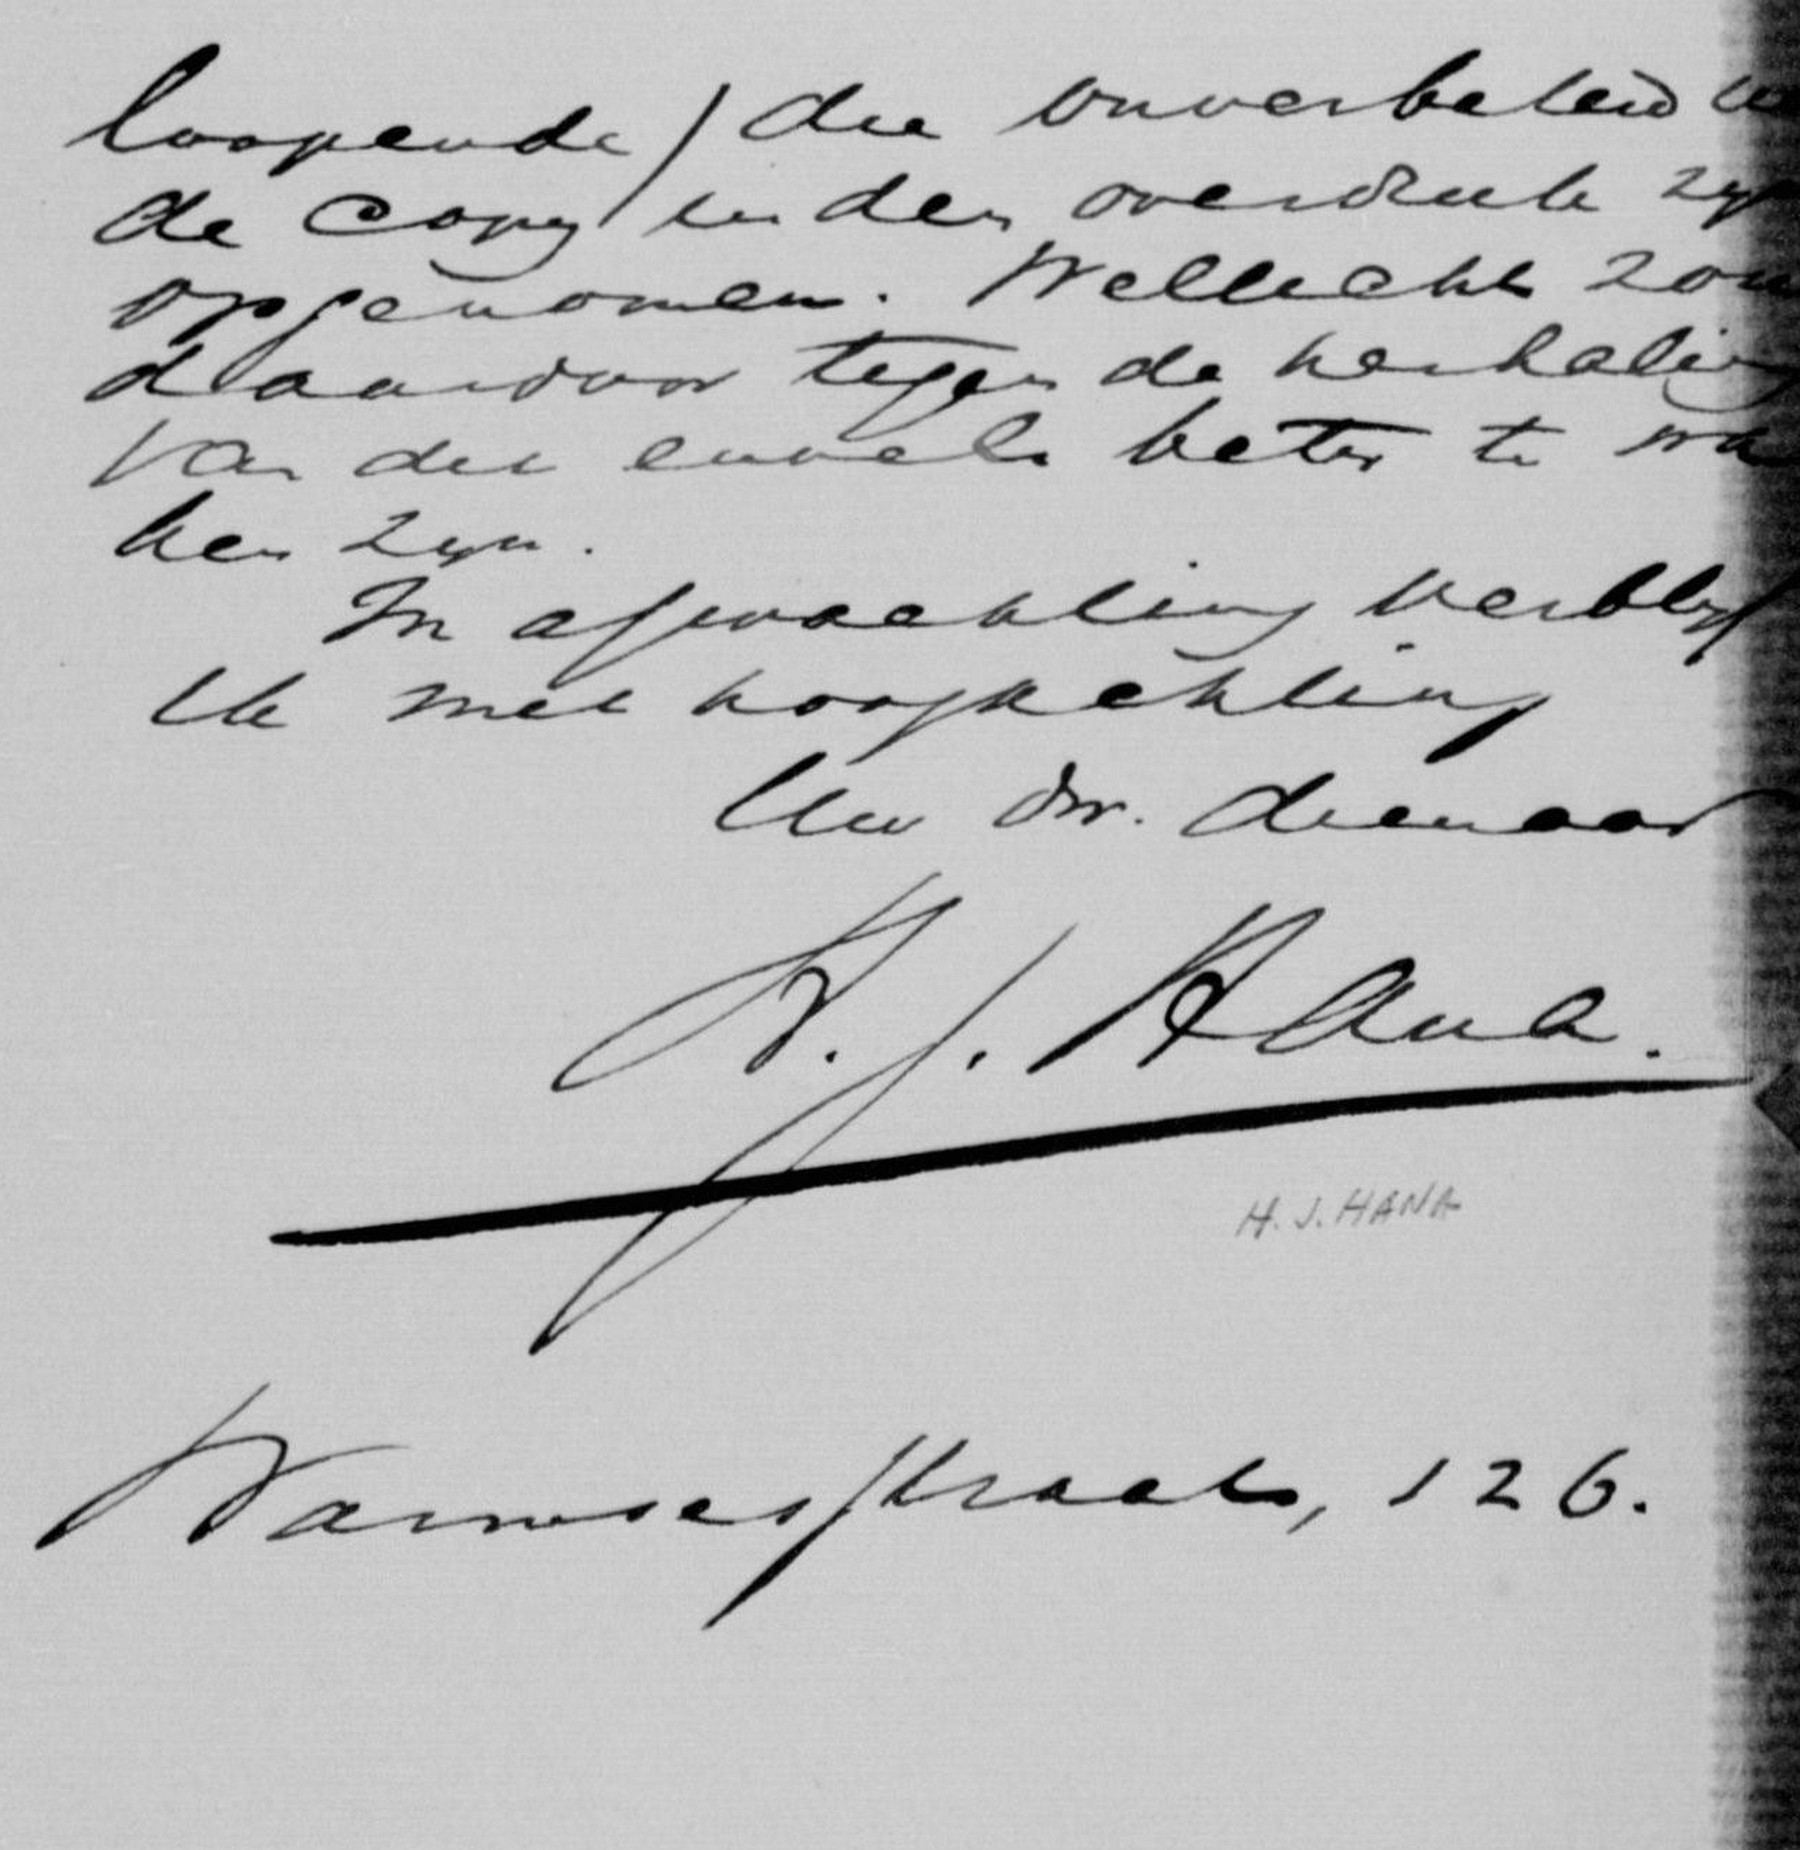 loopende) die onverbeterd u
de copy in den overdruk zyn
opgenomen. Wellicht zou
daardoor tegen de herhaling
van dit euvel beter te wa
ken zyn.
In afwachting verblyf
ik met hoogachting
Uw dw. dienaar
H. J. Hana.
H. J. HANA
Warmoesstraat, 126.